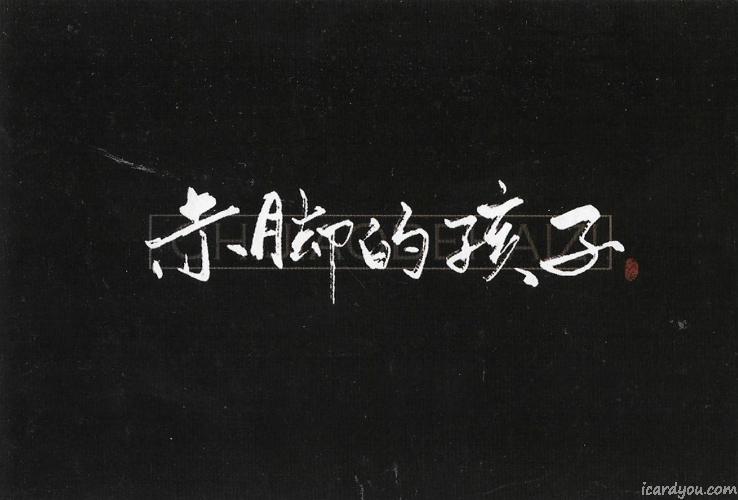 赤脚的孩子
CHIJIAODEHAIZI
icardyou.com